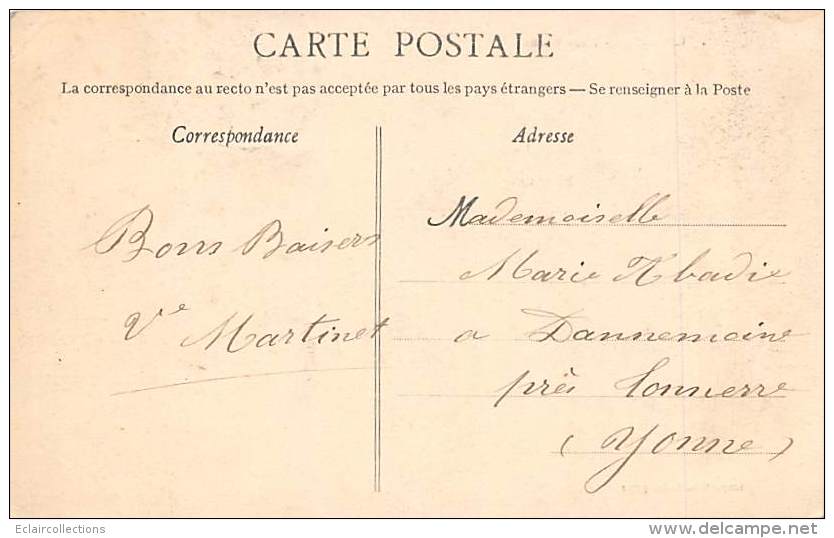 CARTE POSTALE
La correspondance au recto n'est pas acceptée par tous les pays étrangers — Se renseigner à la Poste
Correspondance
Bons Baisers
Ve Martinet
Adresse
Mademoiselle
Marie Abadie
a Dannemoine
près Tonnerre
(Yonne)
Eclaircollections
delcampe.net